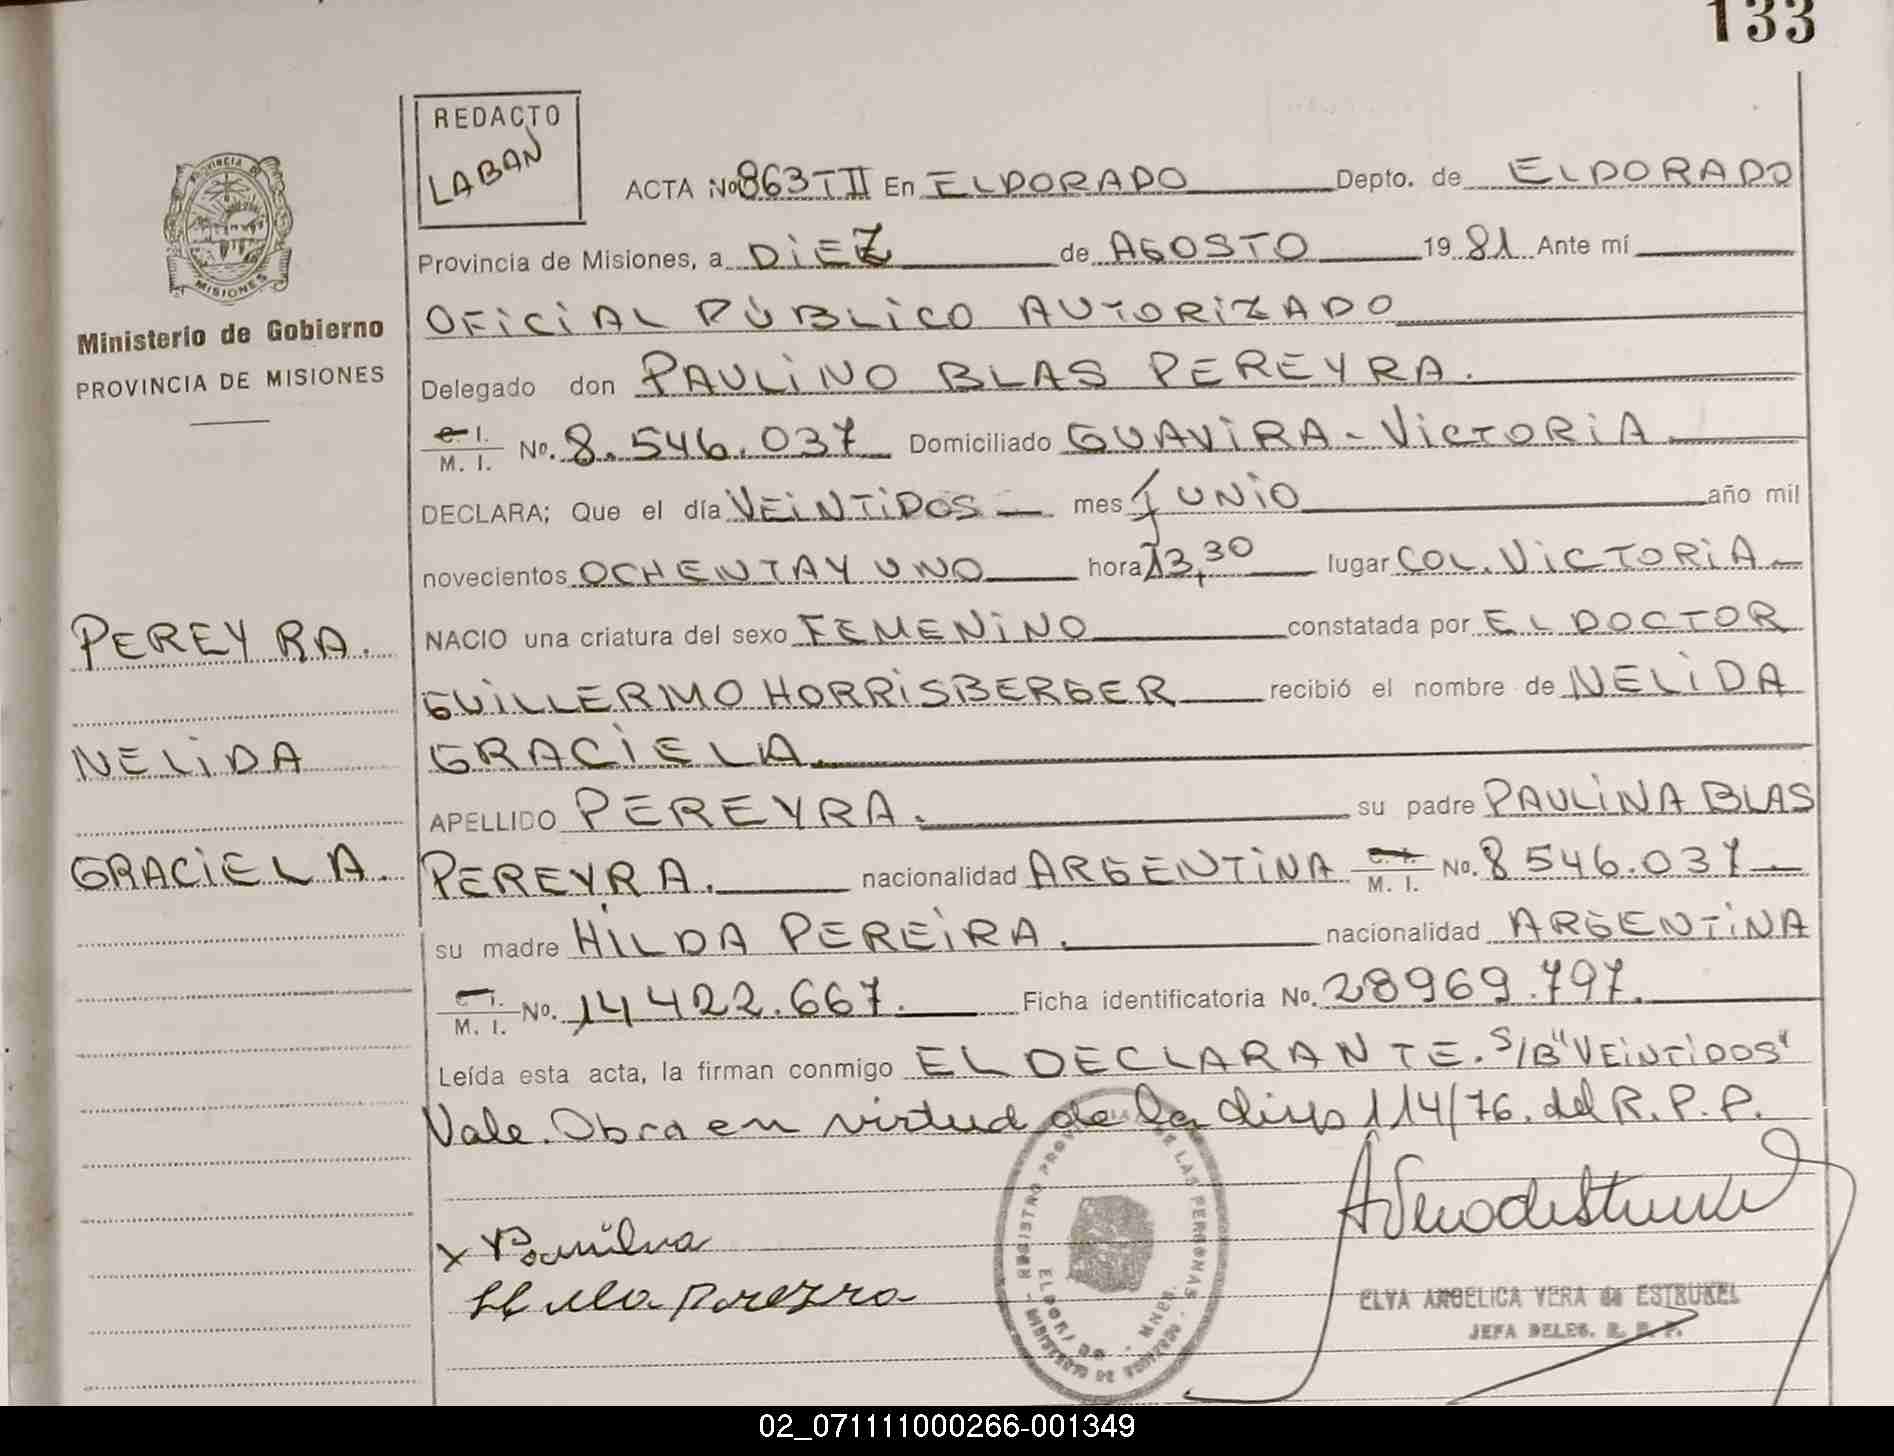 133
REDACTO
LABAN
PROVINCIA DE
MISIONES
Ministerio de Gobierno
PROVINCIA DE MISIONES
ACTA No 863 T II En ELDORADO Depto. de ELDORADO
Provincia de Misiones, a DIEZ de AGOSTO 1981 Ante mí
OFICIAL PÚBLICO AUTORIZADO
Delegado don PAULINO BLAS PEREYRA.
C. I. / M. I. No. 8.546.037 Domiciliado GUAVIRA - VICTORIA
DECLARA; Que el día VEINTIDOS mes JUNIO año mil
novecientos OCHENTA Y UNO hora 13,30 lugar COL. VICTORIA
NACIO una criatura del sexo FEMENINO constatada por EL DOCTOR
GUILLERMO HORRISBERGER recibió el nombre de NELIDA
GRACIELA
APELLIDO PEREYRA. su padre PAULINA BLAS
PEREYRA. nacionalidad ARGENTINA C. I. / M. I. No. 8 546.037
su madre HILDA PEREIRA. nacionalidad ARGENTINA
C. I. / M. I. No. 14422.667. Ficha identificatoria No. 28969.797.
Leída esta acta, la firman conmigo EL DECLARANTE. S/B "VEINTIDOS"
Vale. Obra en virtud de la disp 114/76. del R.P.P.
PEREYRA.
NELIDA
GRACIELA.
x
REGISTRO PROVINCIAL DE LAS PERSONAS
ELDORADO - MNES.
ELVA ANGELICA VERA de ESTRUKEL
JEFA DELEG. R. P. P.
02_071111000266-001349